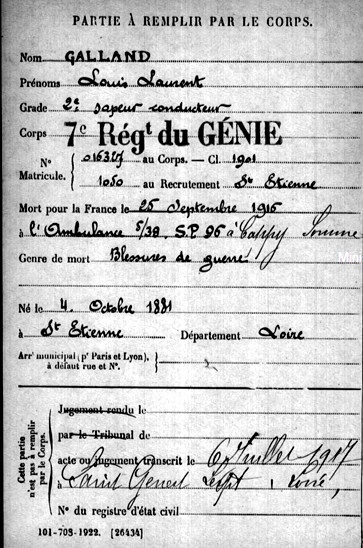 PARTIE À REMPLIR PAR LE CORPS.
Nom GALLAND
Prénoms Louis Laurent
Grade 2e sapeur conducteur
Corps 7e Régt du GÉNIE
N° 016327 au Corps. — Cl. 1901
Matricule. 1050 au Recrutement St Etienne
Mort pour la France le 25 Septembre 1916
à l'Ambulance 5/38. S.P. 96 à Cappy Somme
Genre de mort Blessures de guerre
Né le 4 Octobre 1881
à St Etienne Département Loire
Arrt municipal (pr Paris et Lyon),
à défaut rue et N°.
Cette partie
n'est pas à remplir
par le Corps.
Jugement rendu le
par le Tribunal de
acte ou jugement transcrit le 6 Juillet 1917
à Saint Genest Lerpt, Loire,
N° du registre d'état civil
101-708-1922. [26434]